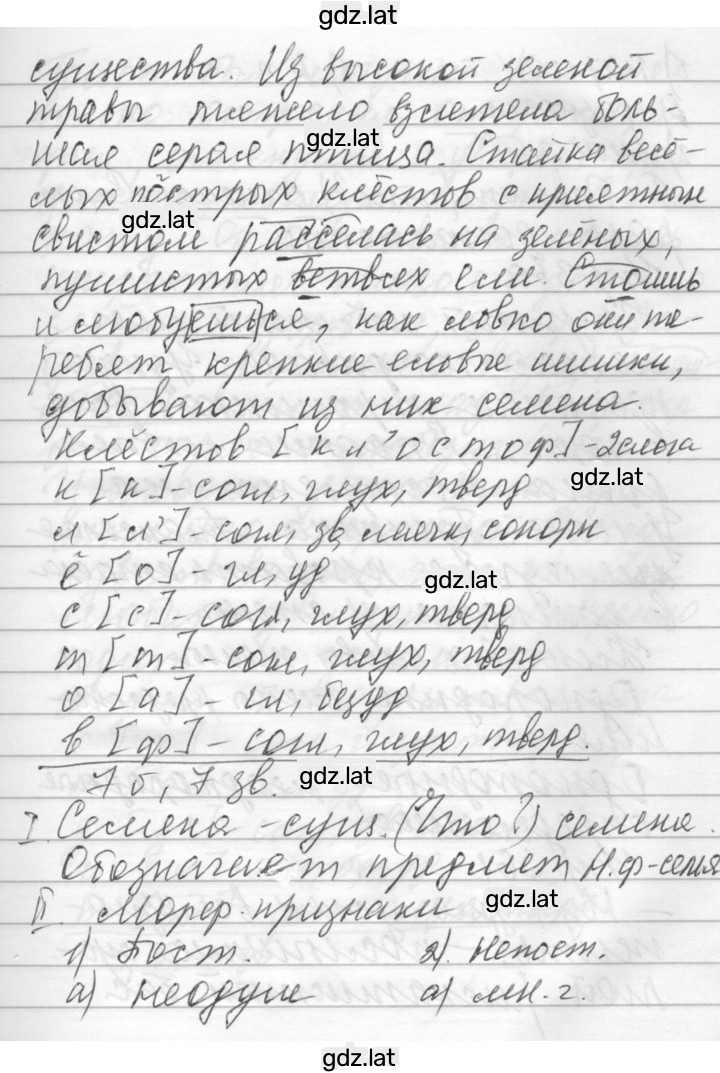 gdz.lat
существа. Из высокой зеленой
травы тяжело взлетела боль-
gdz.lat
шая серая птица. Стайка весё-
лых пёстрых клёстов с приятным
gdz.lat
свистом расселась на зелёных,
пушистых ветвях ели. Стоишь
и любуешься, как ловко они те-
ребят крепкие еловые шишки,
добывают из них семена.
Клёстов [кл'остоф]-2слога
gdz.lat
к [к]-согл, глух, тверд
л [л']-согл, зв, мягк, сонорн
ё [о]-гл, уд
gdz.lat
с [с]-согл, глух, тверд
т [т]-согл, глух, тверд
о [а]-гл, безуд
в [ф]-согл, глух, тверд.
7 б, 7 зв.
gdz.lat
I. Семена -сущ. (Что?) семена.
Обозначает предмет Н.ф-семя
II. Морф. признаки
gdz.lat
1) Пост. 2) Непост.
а) неодуш а) мн. г.
gdz.lat